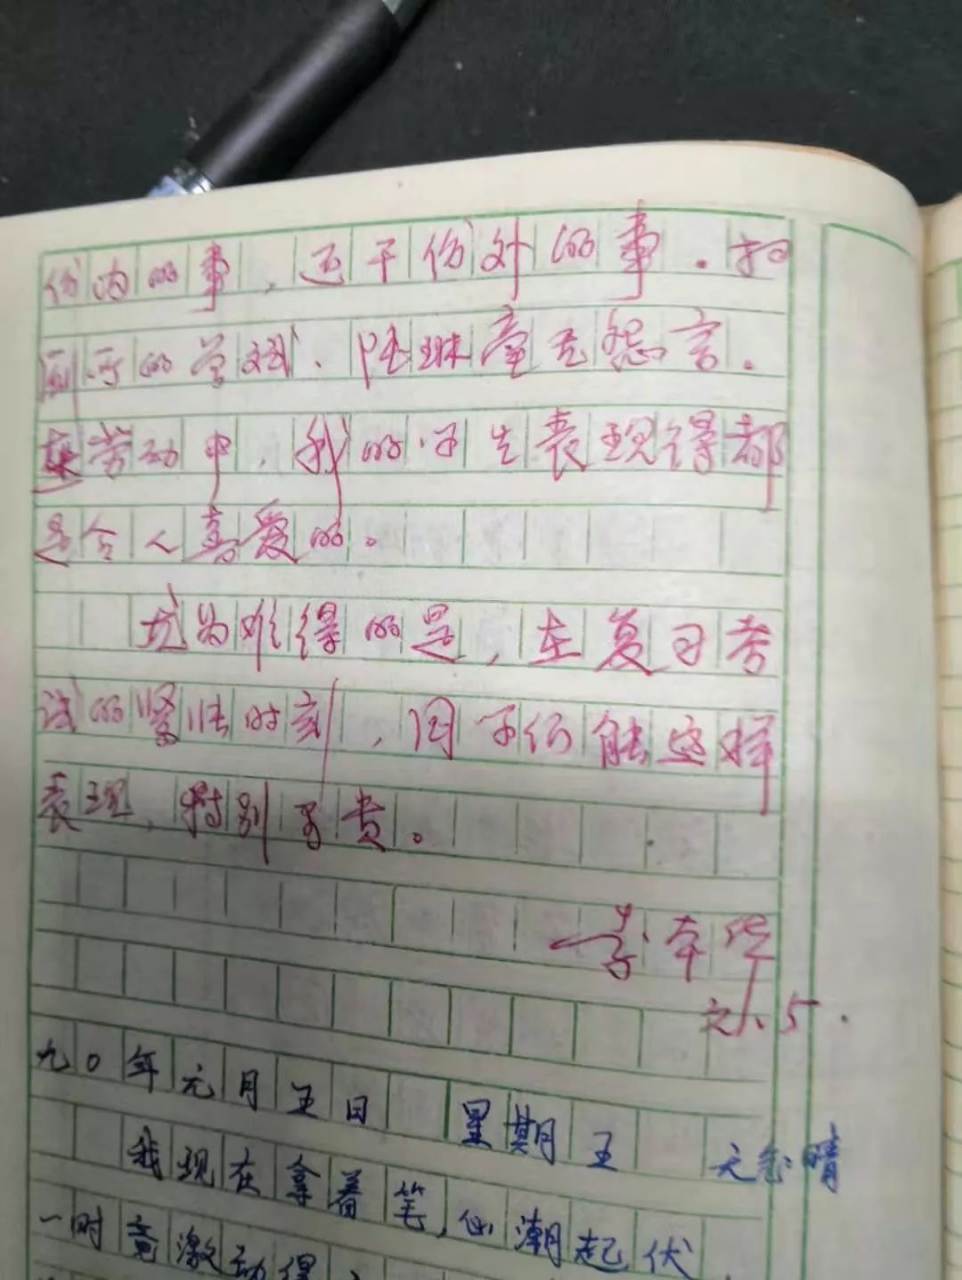 份内的事，还干份外的事。扫
厕所的曾斌、陆琳童无怨言。
在劳动中，我的学生表现得都
是令人喜爱的。
尤为难得的是，在复习考
试的紧张时刻，同学们能这样
表现，特别可贵。
李本
5.
九〇年元月五日 星期五 天气晴
我现在拿着笔，心潮起伏
一时竟激动得